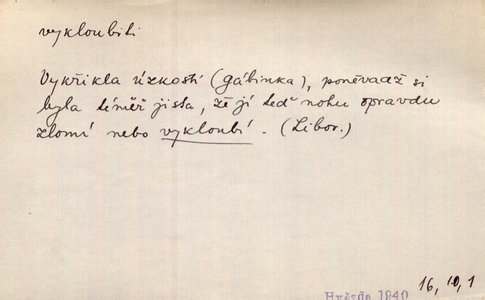 vykloubiti
Vykřikla úzkostí (Gábinka), poněvadž si
byla téměř jista, že jí teď nohu opravdu
zlomí nebo vykloubí. (Libor.)
16, 10, 1
Hvězda 1940